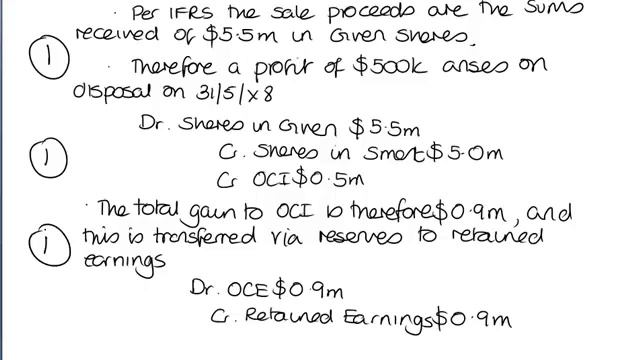 · Per IFRS the sale proceeds are the sums
received of $5.5m in Given shares.
1
· Therefore a profit of $500k arises on
disposal on 31/5/x8
Dr. Shares in Given $5.5m
1
Cr. Shares in Smart $5.0m
Cr OCI $0.5m
· The total gain to OCI is therefore $0.9m, and
1
this is transferred via reserves to retained
earnings
Dr. OCE $0.9m
Cr. Retained Earnings $0.9m